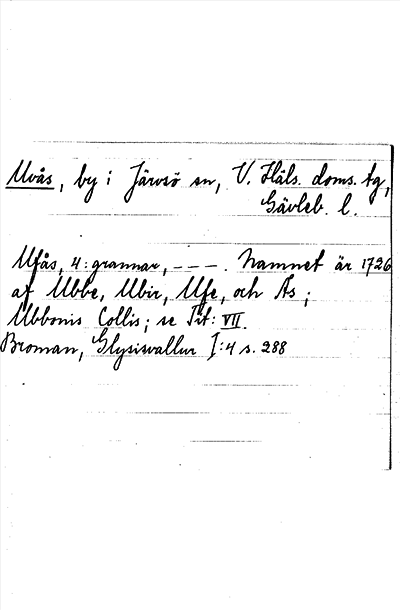 Uvås, by i Järvsö sn, V. Häls. doms. tg,
Gävleb. l.
Ufås, 4: grannar, - - - . Namnet är 1726
af Ubbe, Ubir, Ufe, och Ås ;
Ubbonis Collis; se Tit: VII.
Broman, Glysisvallur I:4 s. 288